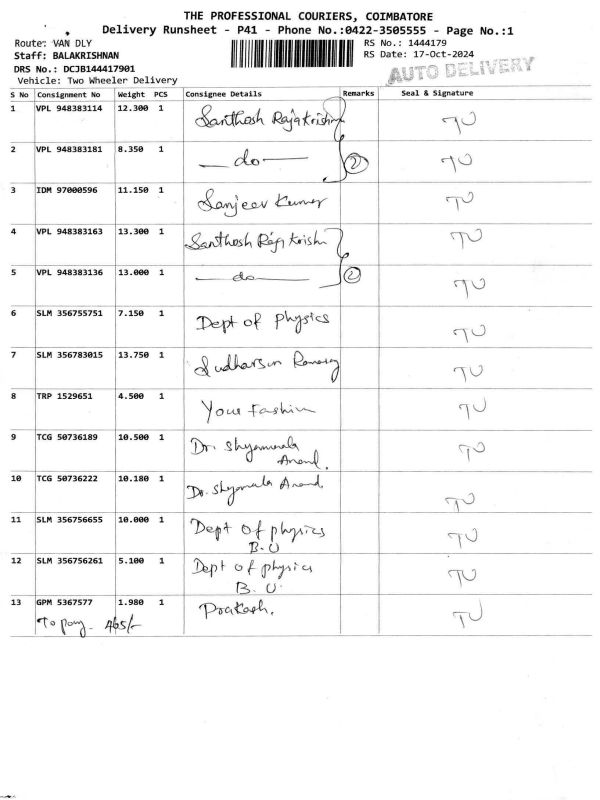 THE PROFESSIONAL COURIERS, COIMBATORE
Delivery Runsheet - P41 - Phone No.:0422-3505555 - Page No.:1
Route: VAN DLY
RS No.: 1444179
Staff: BALAKRISHNAN
RS Date: 17-Oct-2024
DRS No.: DCJB144417901
AUTO DELIVERY
Vehicle: Two Wheeler Delivery
S No Consignment No Weight PCS Consignee Details Remarks Seal & Signature
1 VPL 948383114 12.300 1 Santhosh Rajakrishna TU
2 VPL 948383181 8.350 1 — do — 2 TU
3 IDM 97000596 11.150 1 Sanjeev Kumar TU
4 VPL 948383163 13.300 1 Santhosh Raja Krishn TU
5 VPL 948383136 13.000 1 — do — 2 TU
6 SLM 356755751 7.150 1 Dept of Physics TU
7 SLM 356783015 13.750 1 Sudharsun TU
8 TRP 1529651 4.500 1 Your Fashion TU
9 TCG 50736189 10.500 1 Dr. Shyamala TU
Anand.
10 TCG 50736222 10.180 1 Dr. Shyamala Anand TU
11 SLM 356756655 10.000 1 Dept of physics TU
B.U
12 SLM 356756261 5.100 1 Dept of physics TU
B. U.
13 GPM 5367577 1.980 1 Prakash. TU
To pay - 465/-